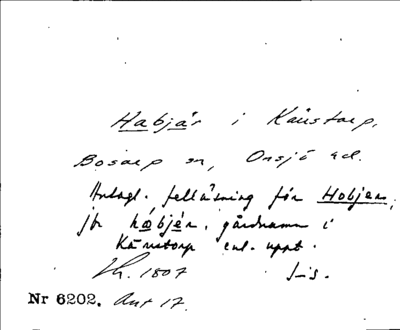 Habjär i Känstorp,
Bosarp sn, Onsjö hd.
Antagl. felläsning för Hobjer,
jfr håbjér, gårdnamn i
Känstorp enl. uppt.
Lh. 1807 J-s.
Nr 6202. Ant 17.